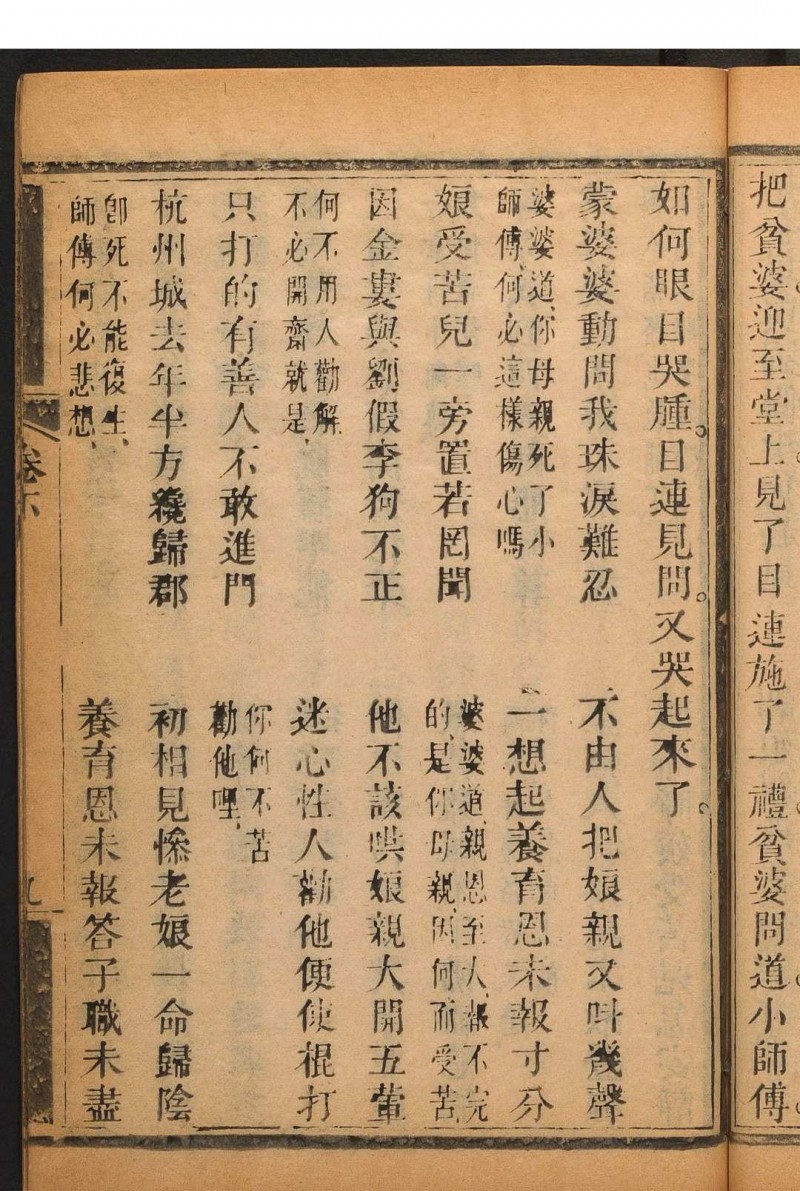 把貧婆迎至堂上見了目連施了一禮貧婆問道小師傅
如何眼目哭腫目連見問又哭起來了
蒙婆婆動問我珠淚難忍　不由人把娘親又呌幾聲
婆婆道你母親死了小
師傅何必這樣傷心嗎　一想起養育恩未報寸分
娘受苦兒一旁置若罔聞　婆婆道親恩至大報不完
的是你母親因何而受苦
因金婁與劉假李狗不正　他不該哄娘親大開五葷
何不用人勸解
不必開齋就是　迷心性人勸他便使棍打
只打的有善人不敢進門　你何不苦
勸他哩
杭州城去年半方纔歸郡　初相見慘老娘一命歸陰
卽死不能復生
師傅何必悲想　養育恩未報答子職未盡
卷下
九